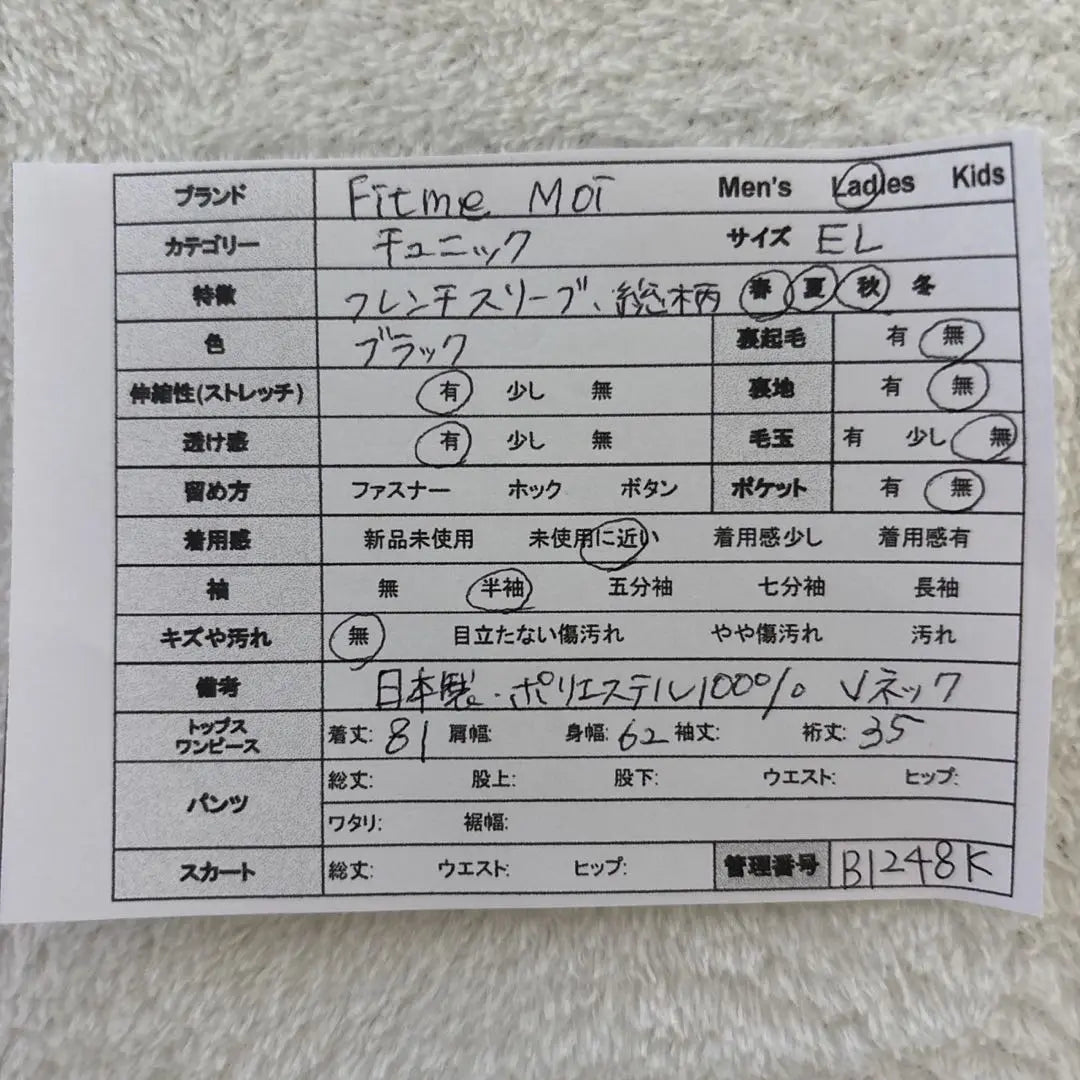 ブランド Fitme Moi Men's Ladies Kids
カテゴリー チュニック サイズ EL
特徴 フレンチスリーブ、総柄 春 夏 秋 冬
色 ブラック 裏起毛 有 無
伸縮性(ストレッチ) 有 少し 無 裏地 有 無
透け感 有 少し 無 毛玉 有 少し 無
留め方 ファスナー ホック ボタン ポケット 有 無
着用感 新品未使用 未使用に近い 着用感少し 着用感有
袖 無 半袖 五分袖 七分袖 長袖
キズや汚れ 無 目立たない傷汚れ やや傷汚れ 汚れ
備考 日本製・ポリエステル100% Vネック
トップス
ワンピース 着丈: 81 肩幅: 身幅: 62 袖丈: 裄丈: 35
パンツ 総丈: 股上: 股下: ウエスト: ヒップ:
ワタリ: 裾幅:
スカート 総丈: ウエスト: ヒップ: 管理番号 B1248K